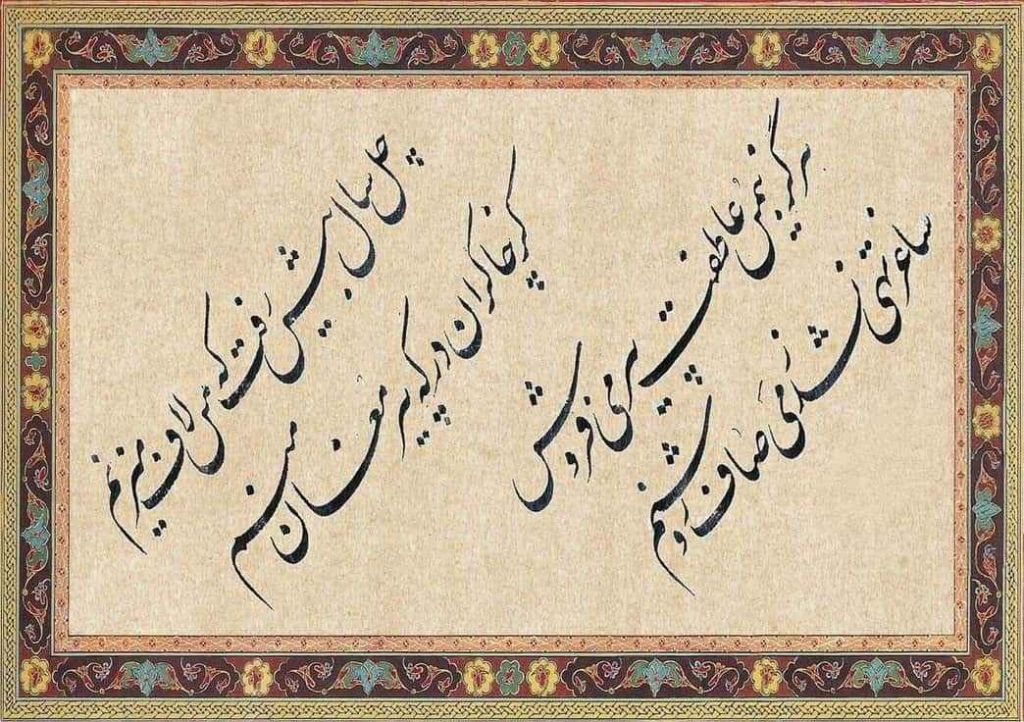 چل سال بیش رفت که من لاف میزنم
کز چاکران درگه پیر مغان منم
هرگز بیمن عاطفت پیر می فروش
ساغر تهی نشد ز می صاف روشنم